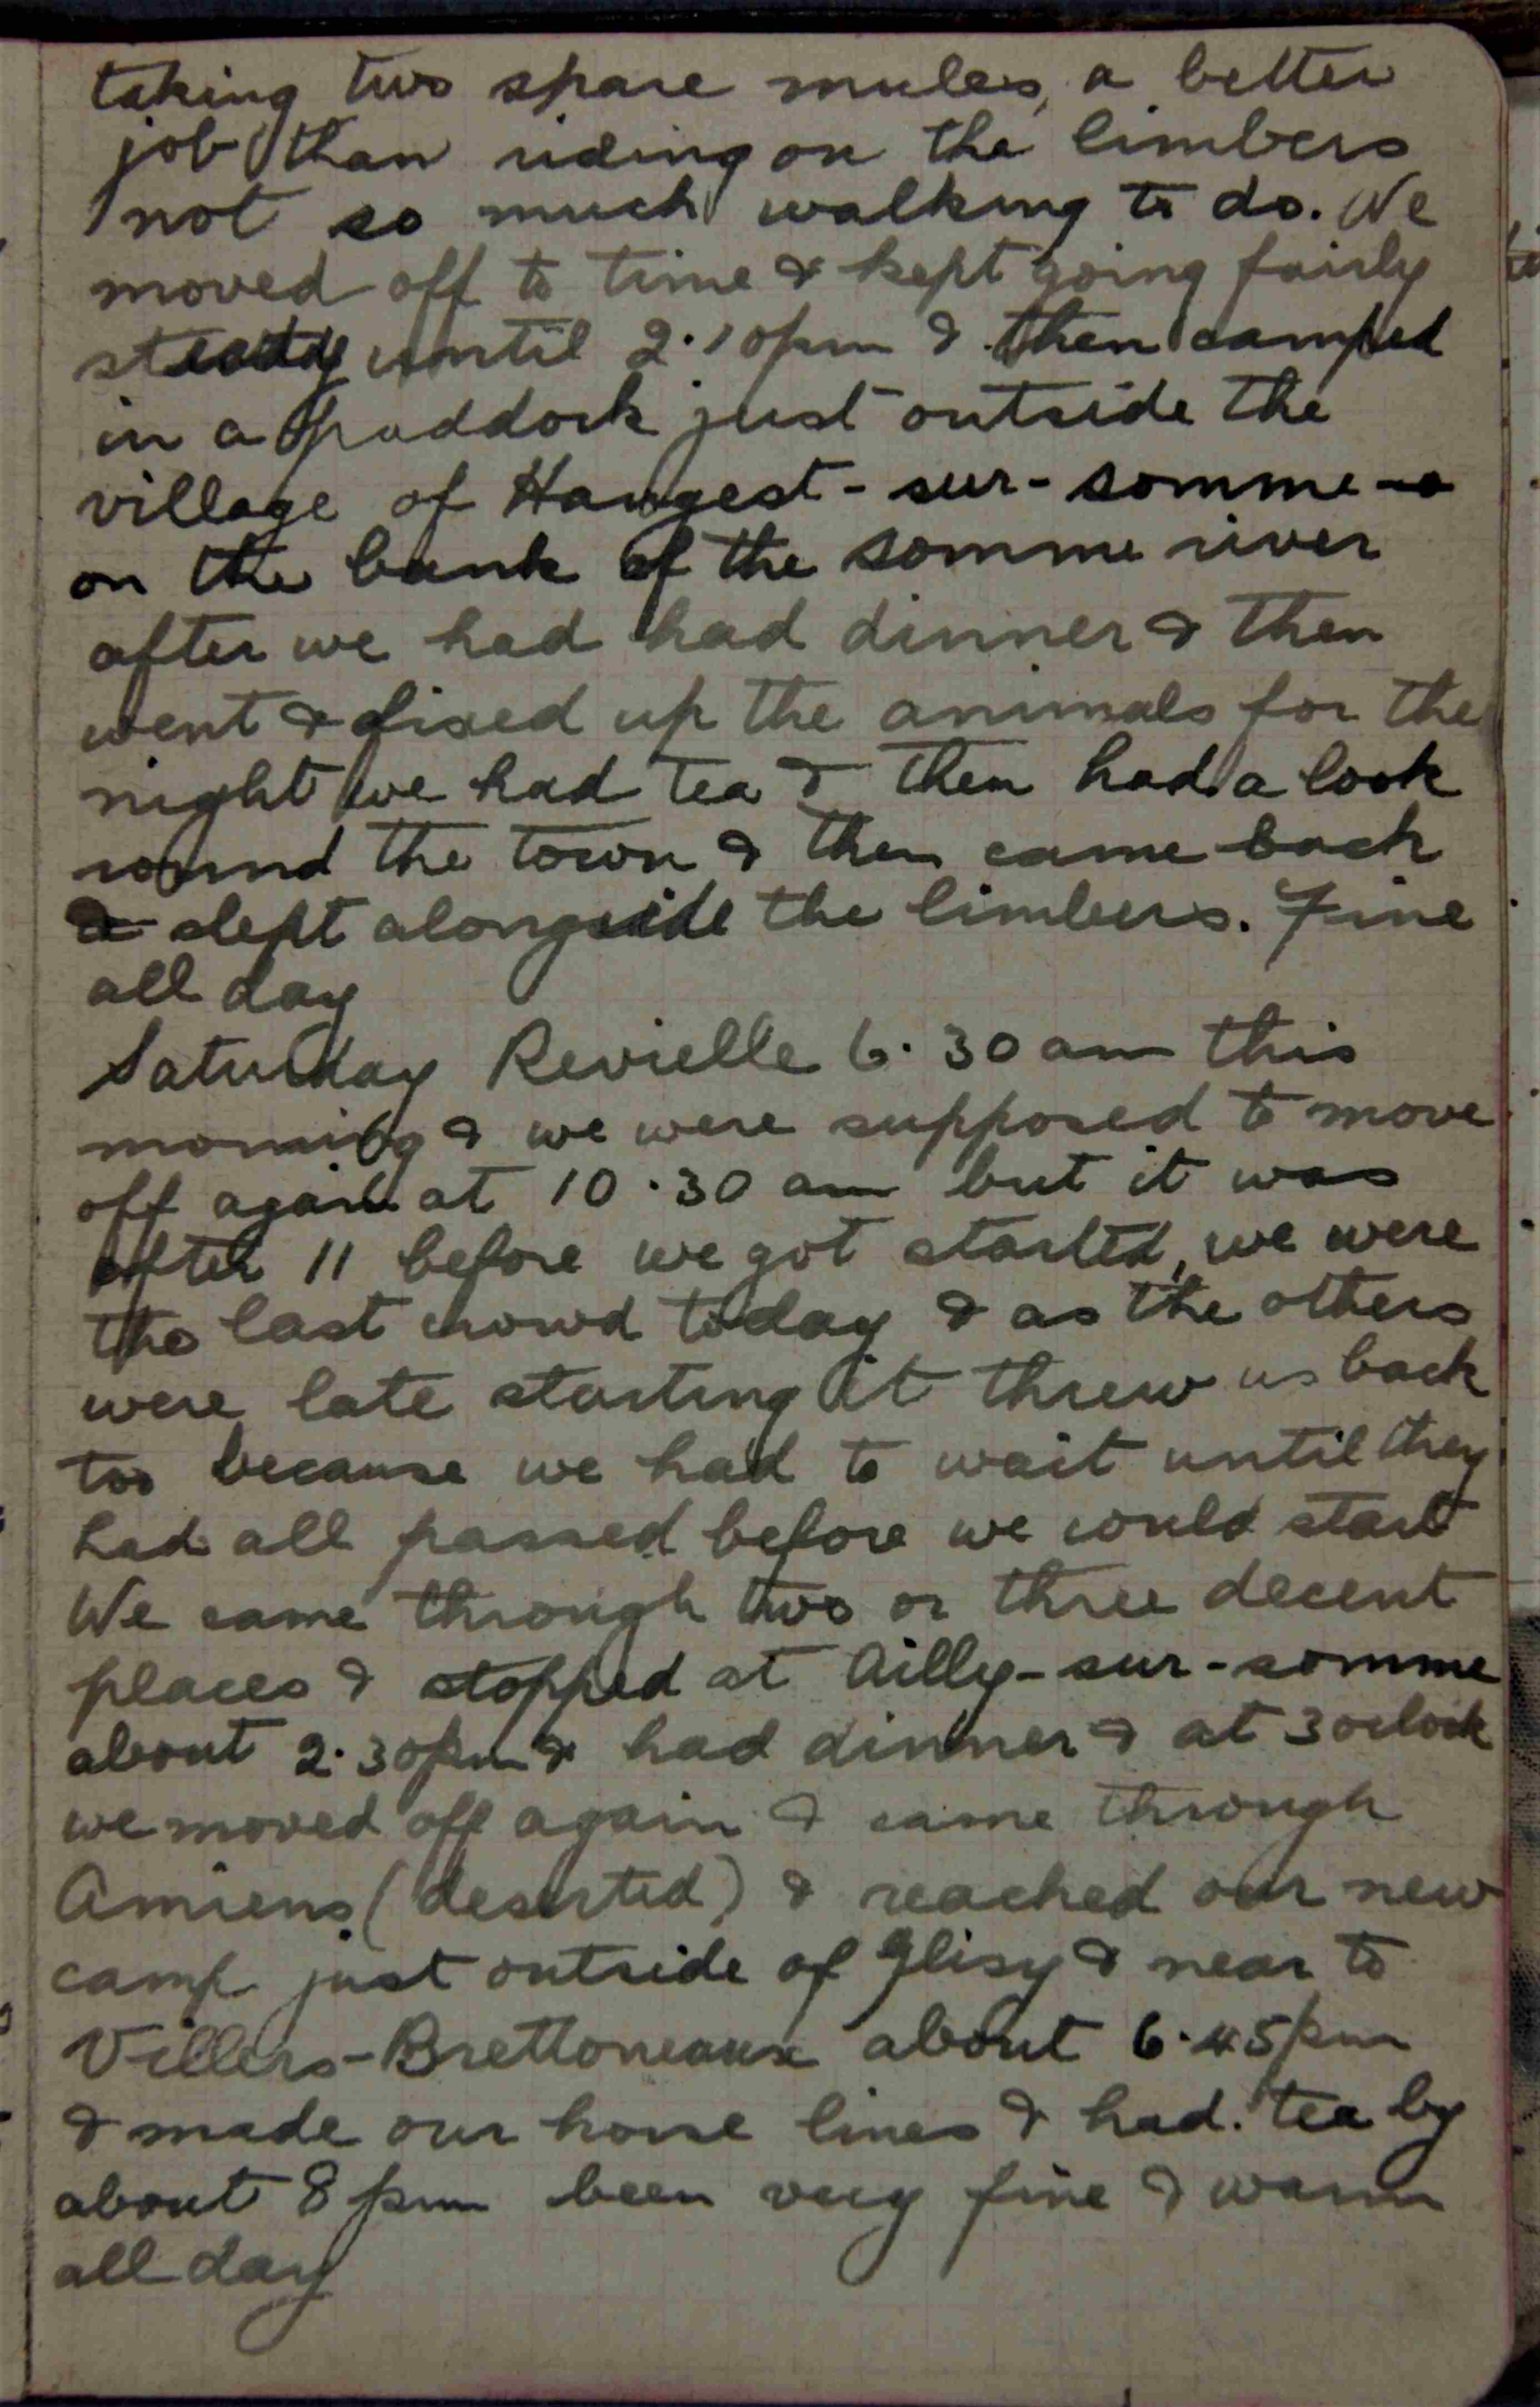 taking two spare mules, a better
job than riding on the limbers
not so much walking to do. We
moved off to time & kept going fairly
steady until 2.10pm & then camped
in a paddock just outside the
village of Hangest-sur-Somme
on the bank of the Somme river
after we had had dinner & then
went & fixed up the animals for the
night we had tea & then had a look
round the town & then came back
& slept alongside the limbers. Fine
all day
Saturday Revielle 6.30 am this
morning & we were supposed to move
off again at 10.30 am but it was
after 11 before we got started, we were
the last crowd today & as the others
were late starting it threw us back
too because we had to wait until they
had all passed before we could start
We came through two or three decent
places & stopped at Ailly-sur-somme
about 2.30pm & had dinner & at 3 oclock
we moved off again & came through
Amiens (deserted) & reached our new
camp just outside of Glisy & near to
Villers-Brettoneaux about 6.45pm
& made our horse lines & had tea by
about 8 pm been very fine & warm
all day